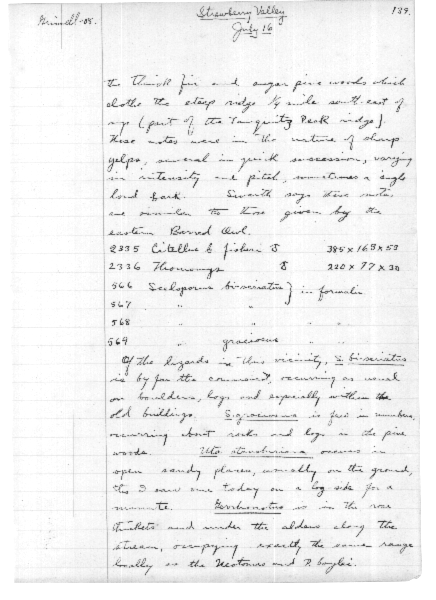 Grinnell-08.
Strawberry Valley
139.
July 16
the thick fir and sugar pine woods which
clothe the steep ridge ¼ mile south-east of
us (part of the Tauquitz Peak ridge).
These notes were in the nature of sharp
yelps, several in quick succession, varying
in intensity and pitch, sometimes a single
loud bark. Swarth says these notes
are similar to those given by the
eastern Barred Owl.
2335 Citellus b. fisheri 385 x 163 x 53
2336 Thomomys 220 x 77 x 30
566 Sceloporus bi-seriatus } in formalin
567 " "
568 " "
569 " graciosus " "
Of the lizards in this vicinity, S. bi-seriatus
is by far the commonest, occurring as usual
on boulders, logs and especially within the
old buildings. S. graciosus is few in numbers,
occurring about rocks and logs in the pine
woods. Uta stansburiana occurs in
open sandy places, usually on the ground,
tho I saw one today on a log side for a
minute. Gerrhonotus is in the rose
thickets and under the alders along the
stream, occupying exactly the same range
locally as the Neotomas and P. boylei.